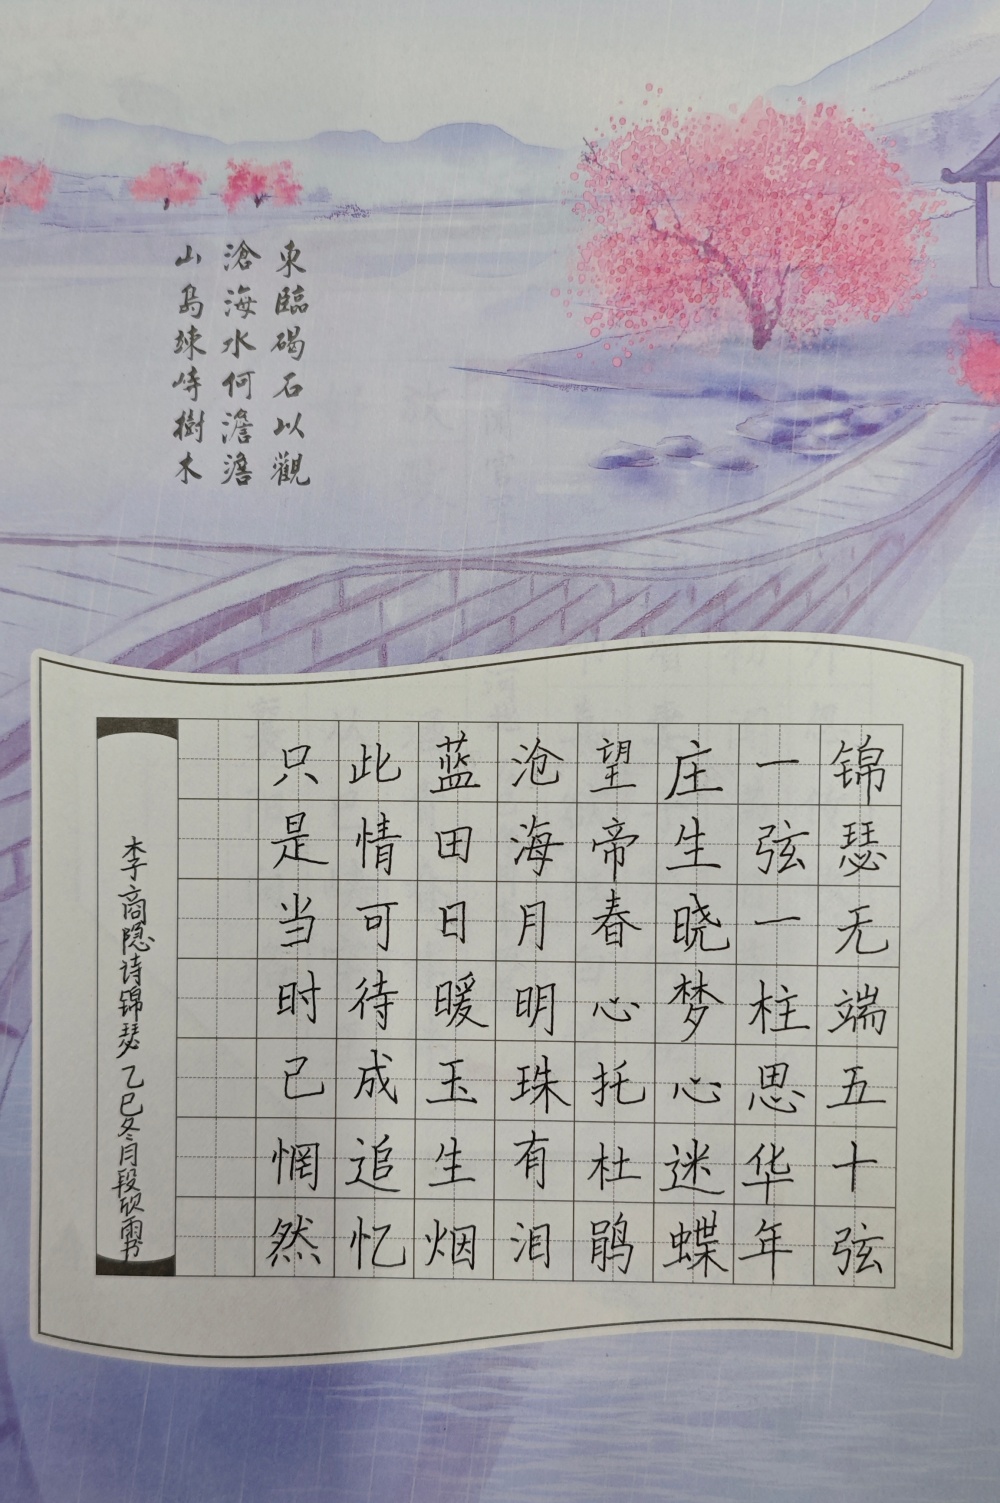 東臨碣石以觀
滄海水何澹澹
山島竦峙樹木
锦瑟无端五十弦
一弦一柱思华年
庄生晓梦心迷蝶
望帝春心托杜鹃
沧海月明珠有泪
蓝田日暖玉生烟
此情可待成追忆
只是当时已惘然
李商隐诗锦瑟 乙巳冬月段欣雨书